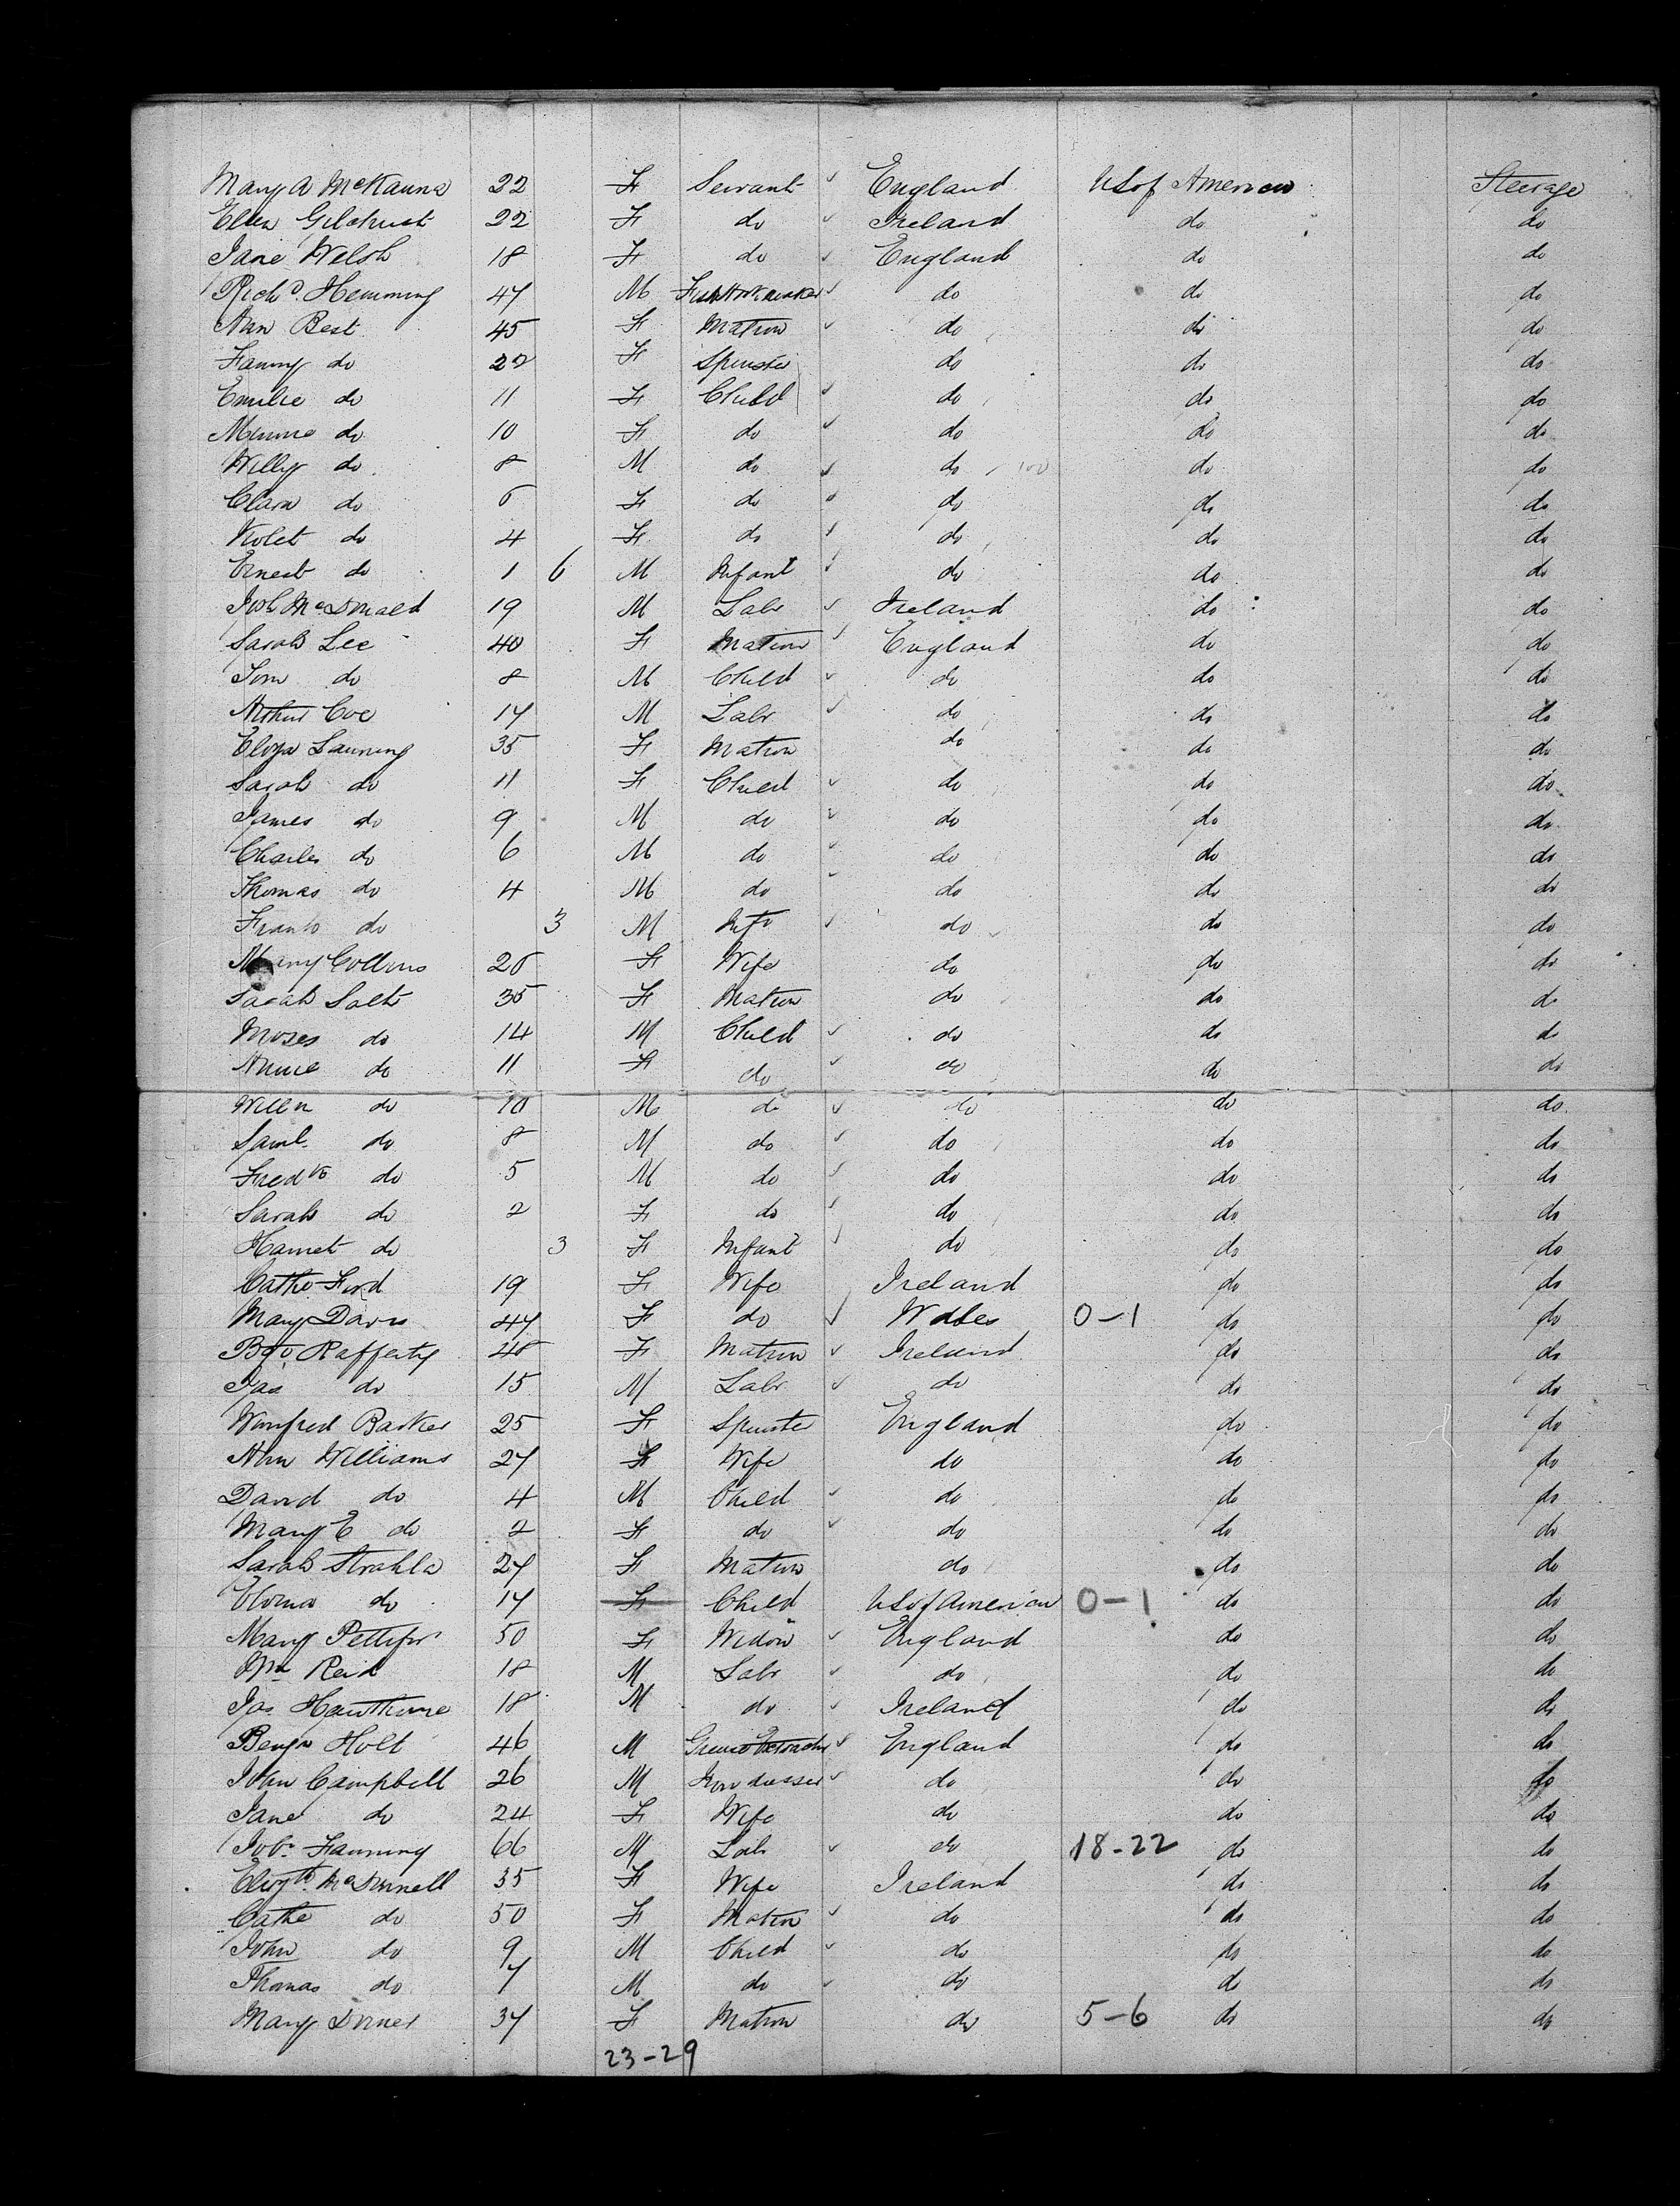 Mary A McKanna 22 F Servant England US of America Steerage
Ellen Gilchrist 22 F do Ireland do do
Jane Welsh 18 F do England do do
Richd. Hemming 47 M do do do
Ann Best 45 F Matron do do do
Fanny do 22 F Spinster do do do
Emilie do 11 F Child do do do
Minnie do 10 F do do do do
Willy do 8 M do do do do
Clara do 6 F do do do do
Violet do 4 F do do do do
Ernest do 1 6 M Infant do do do
Jos McDonald 19 M Labr Ireland do do
Sarah Lee 40 F Matron England do do
Tom do 8 M Child do do do
Arthur Coe 17 M Labr do do do
Eliza Lanning 35 F Matron do do do
Sarah do 11 F Child do do do
James do 9 M do do do do
Charles do 6 M do do do do
Thomas do 4 M do do do do
Frank do 3 M Inft do do do
Collins 26 F Wife do do do
Sarah Salts 35 F Matron do do do
Moses do 14 M Child do do do
Annie do 11 F do do do do
Willm do 10 M do do do do
Saml. do 8 M do do do do
Fredk do 5 M do do do do
Sarah do 2 F do do do do
Harriet do 3 F Infant do do do
Cathe Ford 19 F Wife Ireland do do
Mary Davis 47 F do Wales 0-1 do do
Bgt Rafferty 48 F Matron Ireland do do
Jas do 15 M Labr do do do
Winifred Barker 25 F Spinster England do do
Ann Williams 27 F Wife do do do
David do 4 M Child do do do
Mary E do 2 F do do do do
Sarah 27 F Matron do do do
do 17 F Child US of America 0-1 do do
Mary Pettifor 50 F Widow England do do
Wm Reid 18 M Labr do do do
Jas Hawthorne 18 M do Ireland do do
Benjn Holt 46 M England do do
John Campbell 26 M Iron dresser do do do
Jane do 24 F Wife do do do
Fanning 66 M Labr do 18-22 do do
Elizth McDonnell 35 F Wife Ireland do do
Cathe do 50 F Matron do do do
John do 9 M Child do do do
Thomas do 7 M do do do do
Mary 37 F Matron do 5-6 do do
23-29